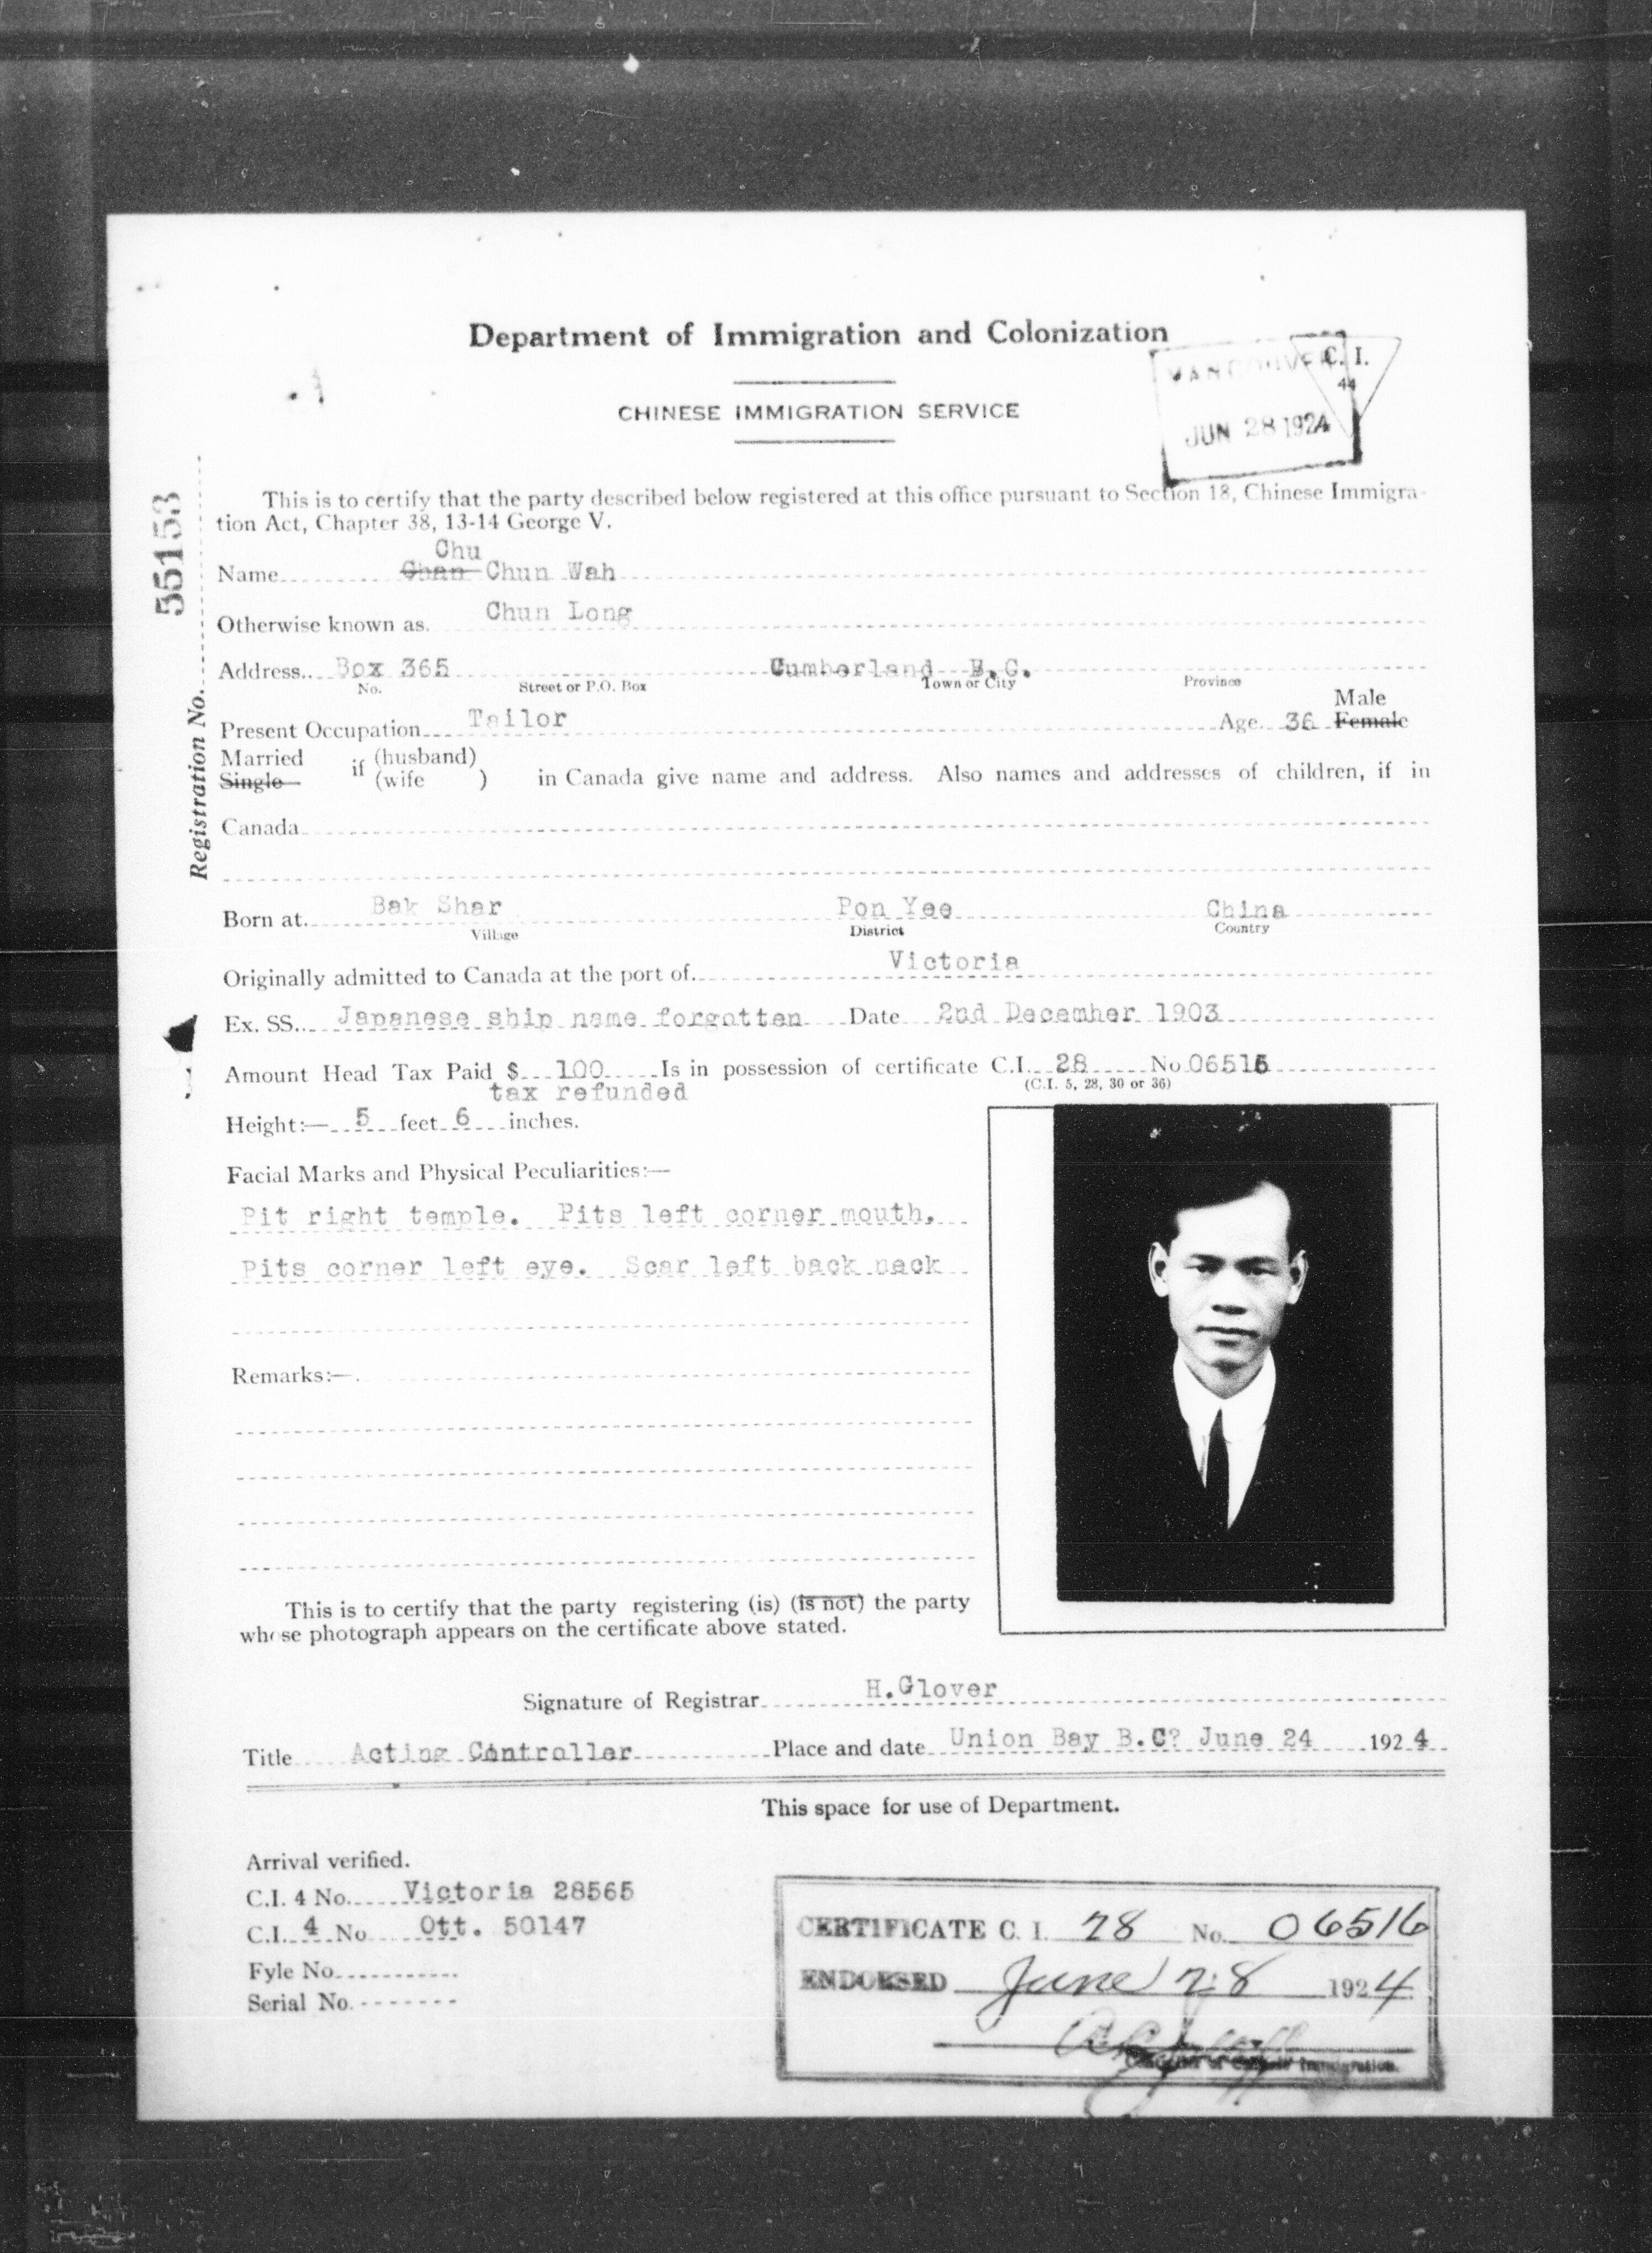 Department of Immigration and Colonization
CHINESE IMMIGRATION SERVICE
VANCOUVER
C. I.
44
JUN 28 1924
Registration No. 55153
This is to certify that the party described below registered at this office pursuant to Section 18, Chinese Immigra-
tion Act, Chapter 38, 13-14 George V.
Chu
Name Chan Chun Wah
Otherwise known as. Chun Long
Address Box 365 Cumberland B.C.
No. Street or P.O. Box Town or City Province
Male
Present Occupation Tailor Age 36 Female
Married if (husband)
Single (wife ) in Canada give name and address. Also names and addresses of children, if in
Canada
Born at. Bak Shar Pon Yee China
Village District Country
Originally admitted to Canada at the port of Victoria
Ex. SS. Japanese ship name forgotten Date 2nd December 1903
Amount Head Tax Paid $ 100 Is in possession of certificate C.I. 28 No 06516
tax refunded (C.I. 5, 28, 30 or 36)
Height:— 5 feet 6 inches.
Facial Marks and Physical Peculiarities:—
Pit right temple. Pits left corner mouth.
Pits corner left eye. Scar left back neck
Remarks:—
This is to certify that the party registering (is) (is not) the party
whose photograph appears on the certificate above stated.
Signature of Registrar H.Glover
Title Acting Controller Place and date Union Bay B.C? June 24 1924
This space for use of Department.
Arrival verified.
C.I. 4 No. Victoria 28565
C.I. 4 No Ott. 50147
Fyle No.
Serial No.
CERTIFICATE C. I. 28 No. 06516
ENDORSED June 28 1924
Immigration.